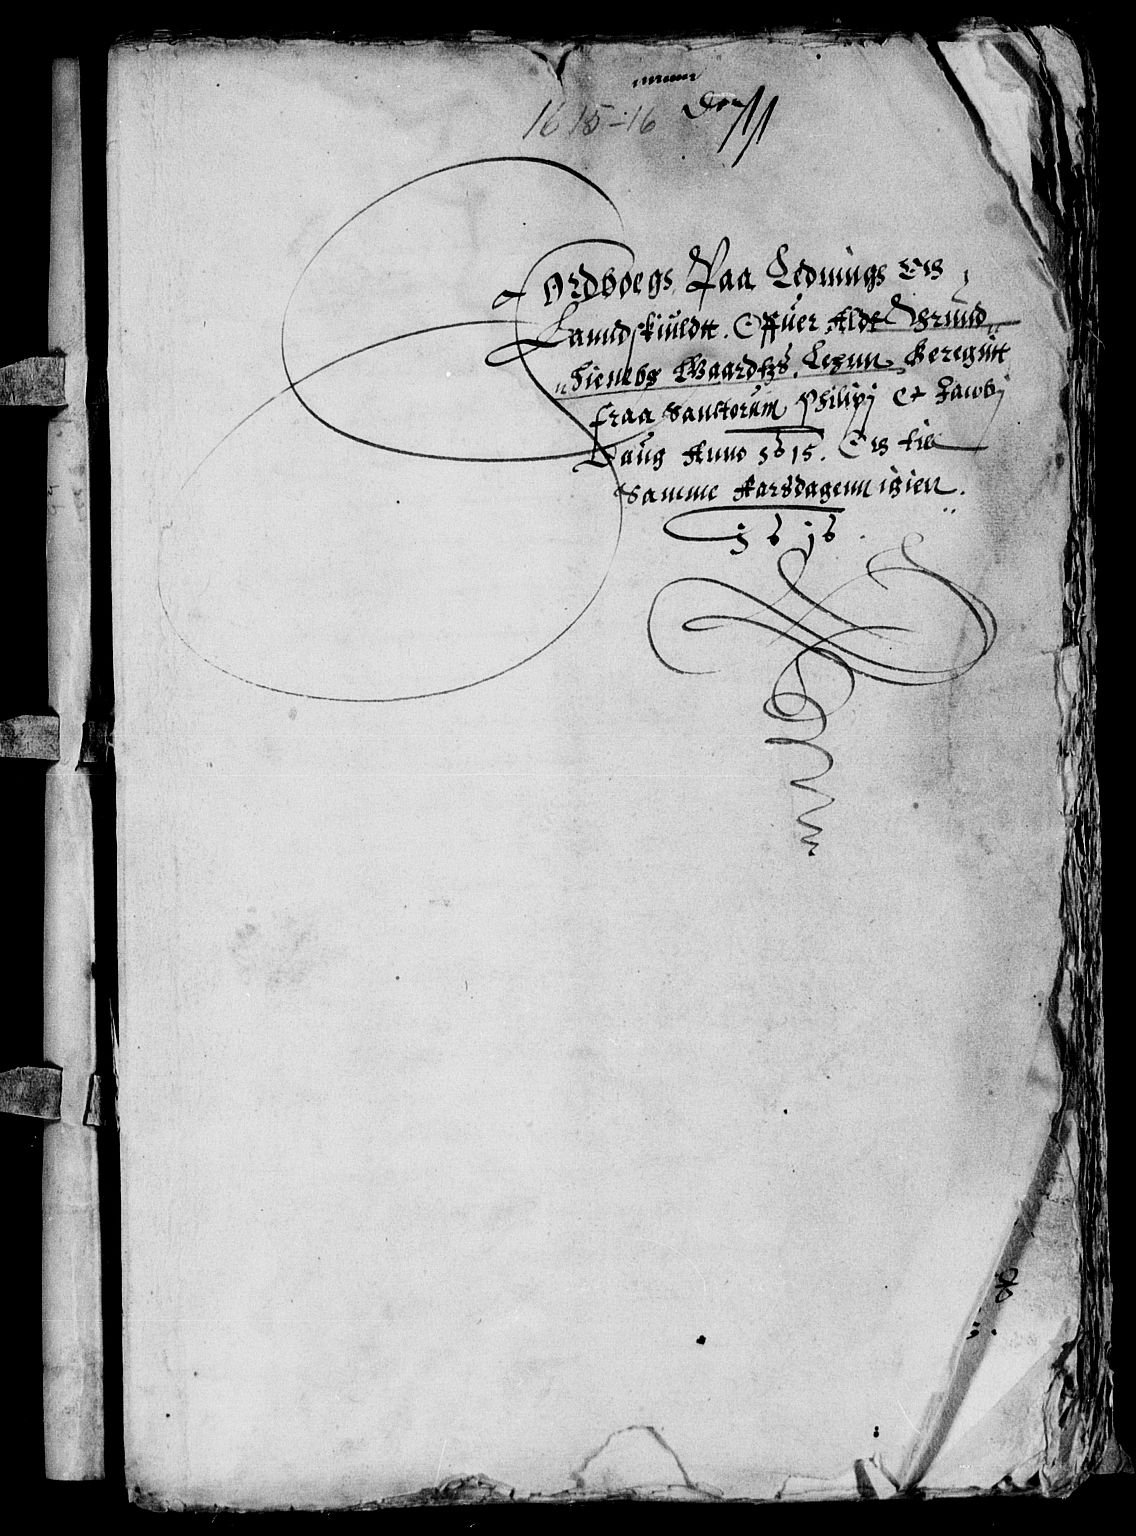 1615-16
Jordboegs Paa Ledinngs Och
Lanndskiuldt. Offuer Aldt Trund
hiembs Gaardtzs Lehnn, Beregnitt
fraa Sanctorum Philipj et Jacobj
Daug Anno 1615. Och till
samme Aarsdagenn igien.
1616.